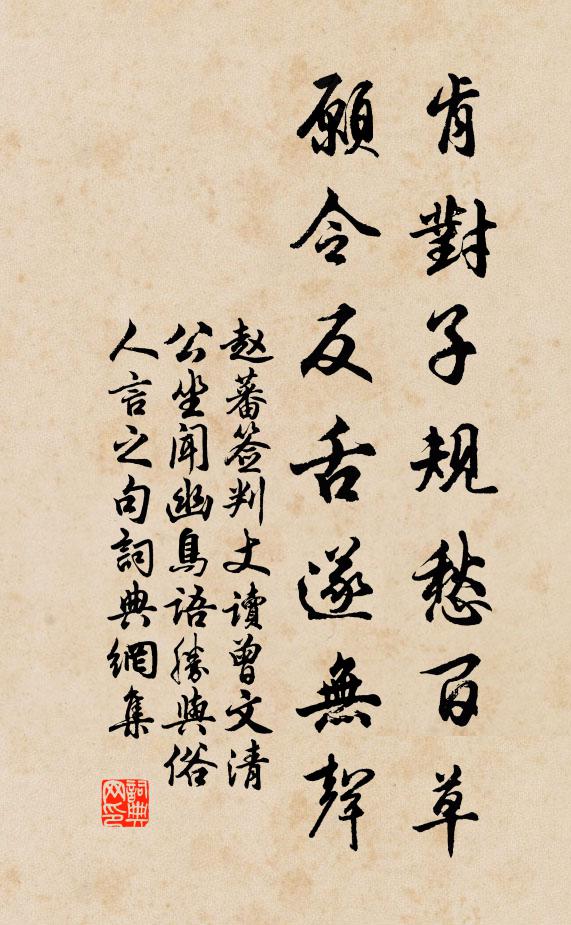 肯對子規愁百草
願令反舌遂無聲
赵蕃签判丈讀曾文清
公坐聞幽鳥語勝與俗
人言之句詞典網集
詞典
网印